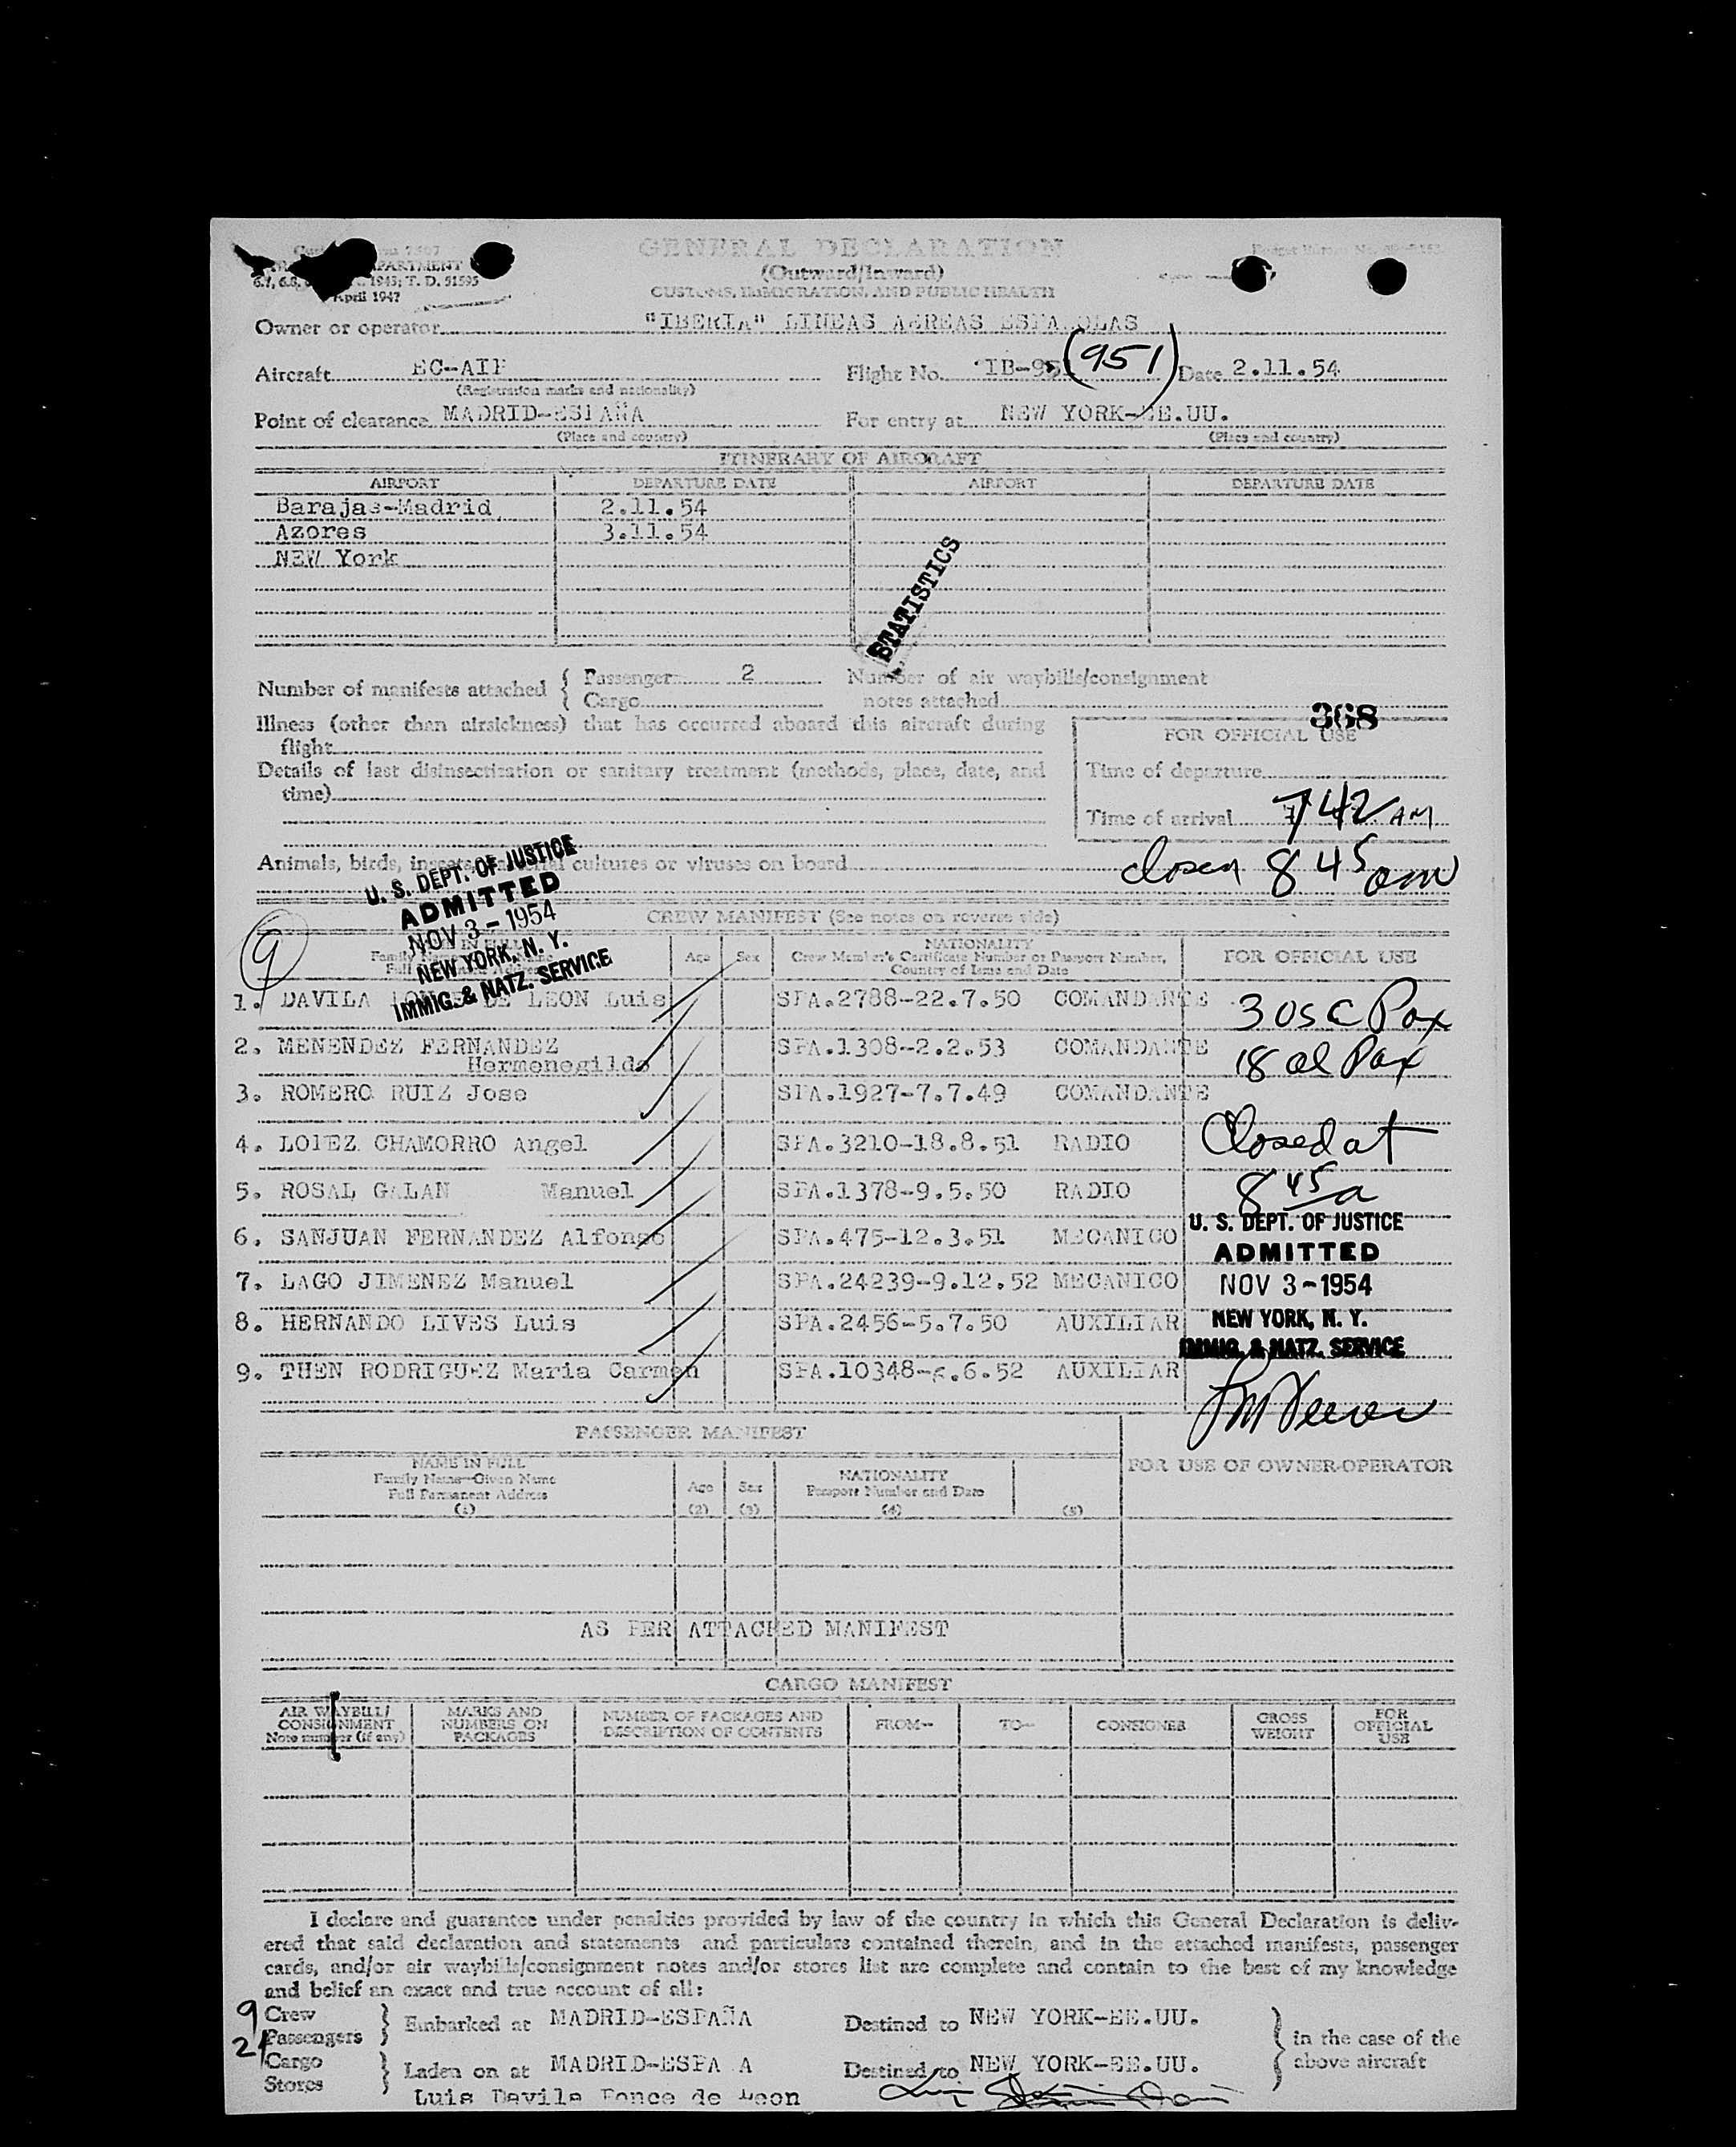 GENERAL DECLARATION
(Outward/Inward)
CUSTOMS, IMMIGRATION, AND PUBLIC HEALTH
April 1947
Owner or operator "IBERIA" LINEAS AEREAS ESPA OLAS
Aircraft EC-AIP Flight No. IB-95 (951) Date 2.11.54
(Registration marks and nationality)
Point of clearance MADRID-ESPAÑA For entry at NEW YORK-EE.UU.
(Place and country) (Place and country)
ITINERARY OF AIRCRAFT
AIRPORT DEPARTURE DATE AIRPORT DEPARTURE DATE
Barajas-Madrid 2.11.54
Azores 3.11.54
NEW York
STATISTICS
Number of manifests attached { Passenger 2 Number of air waybills/consignment
Cargo notes attached
368
Illness (other than airsickness) that has occurred aboard this aircraft during
flight
FOR OFFICIAL USE
Details of last disinsectization or sanitary treatment (methods, place, date, and
time)
Time of departure
Time of arrival 742 AM
closed 845 am
Animals, birds, insects, bacterial cultures or viruses on board
U. S. DEPT. OF JUSTICE
ADMITTED
NOV 3 - 1954
NEW YORK, N. Y.
IMMIG. & NATZ. SERVICE
CREW MANIFEST (See notes on reverse side)
9
Age Sex NATIONALITY FOR OFFICIAL USE
Crew Member's Certificate Number or Passport Number,
Country of Issue and Date
1. DAVILA PONCE DE LEON Luis SPA.2788-22.7.50 COMANDANTE
3 USC Pax
2. MENENDEZ FERNANDEZ SPA.1308-2.2.53 COMANDANTE
Hermenegildo
18 al Pax
3. ROMERO RUIZ Jose SPA.1927-7.7.49 COMANDANTE
4. LOPEZ CHAMORRO Angel SPA.3210-18.8.51 RADIO
Closed at
5. ROSAL GALAN Manuel SPA.1378-9.5.50 RADIO
8 45 a
6. SANJUAN FERNANDEZ Alfonso SPA.475-12.3.51 MECANICO
7. LAGO JIMENEZ Manuel SPA.24239-9.12.52 MECANICO
8. HERNANDO LIVES Luis SPA.2456-5.7.50 AUXILIAR
9. THEN RODRIGUEZ Maria Carmen SPA.10348- .6.52 AUXILIAR
U. S. DEPT. OF JUSTICE
ADMITTED
NOV 3 - 1954
NEW YORK, N. Y.
IMMIG. & NATZ. SERVICE
PASSENGER MANIFEST
FOR USE OF OWNER-OPERATOR
NAME IN FULL
Family Name—Given Name
Full Permanent Address
(1)
Age
(2)
Sex
(3)
NATIONALITY
Passport Number and Date
(4)
(5)
AS PER ATTACHED MANIFEST
CARGO MANIFEST
AIR WAYBILL/
CONSIGNMENT
Note number (if any)
MARKS AND
NUMBERS ON
PACKAGES
NUMBER OF PACKAGES AND
DESCRIPTION OF CONTENTS
FROM—
TO—
CONSIGNEE
GROSS
WEIGHT
FOR
OFFICIAL
USE
I declare and guarantee under penalties provided by law of the country in which this General Declaration is deliv-
ered that said declaration and statements and particulars contained therein, and in the attached manifests, passenger
cards, and/or air waybills/consignment notes and/or stores list are complete and contain to the best of my knowledge
and belief an exact and true account of all:
9 Crew
21 Passengers
} Embarked at MADRID-ESPAÑA Destined to NEW YORK-EE.UU.
in the case of the
above aircraft
Cargo
Stores
} Laden on at MADRID-ESPA A Destined to NEW YORK-EE.UU.
Luis Davila Ponce de Leon